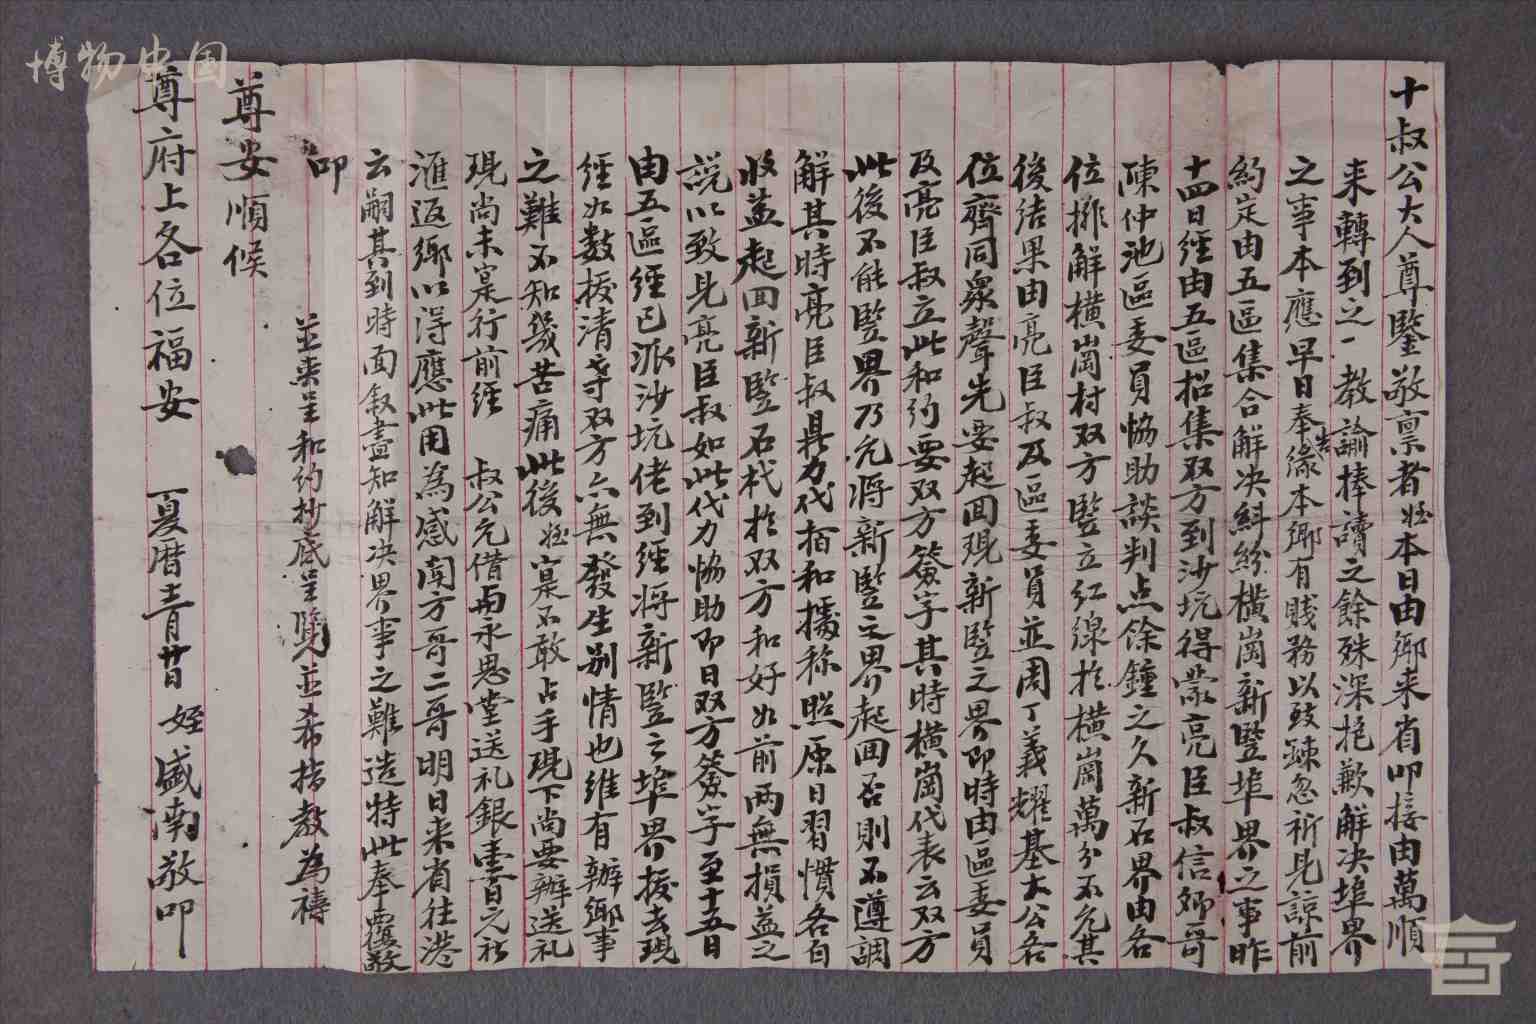 十叔公大人尊鑒敬禀者姪本日由鄉来省叩接由萬順
来轉到之一教諭捧讀之餘殊深抱歉解决埠界
之事本應早日奉告緣本鄉有賤務以致踈忽祈見諒前
約定由五區集合解决糾紛橫崗新豎埠界之事昨
十四日經由五區招集双方到沙坑得蒙亮臣叔信卿哥
陳仲池區委員恊助談判点餘鐘之久新石界由各
位排解橫崗村双方豎立红線扵橫崗萬分不允其
後结果由亮臣叔及區委員並周丁義耀基大公各
位齊同衆聲先要起回現新豎之界即時由區委員
及亮臣叔立此和约要双方簽字其時橫崗代表云双方
此後不能豎界乃允将新豎之界起回否則不遵調
解其時亮臣叔具力代抬和據称照原日習慣各自
收益起回新豎石杙扵双方和好如前两無損益之
説以致見亮臣叔如此代力恊助即日双方簽字至十五日
由五區經已派沙坑佬到經将新豎之埠界拔去現
經如数拔清寺双方亦無發生别情也维有辦鄉事
之難不知幾苦痛此後姪寔不敢占手現下尚要辦送礼
現尚未寔行前經 叔公允借用永思堂送礼銀壹百元祈
滙返鄉以济應此用為感闻方哥二哥明日来省往港
云嗣其到時面叙盡知解决界事之難造特此奉覆敬
叩
尊安順候
並夹呈和约抄底呈覽並希指教為禱
尊府上各位福安 夏曆十二月廿日 姪盛南敬叩
博物中国